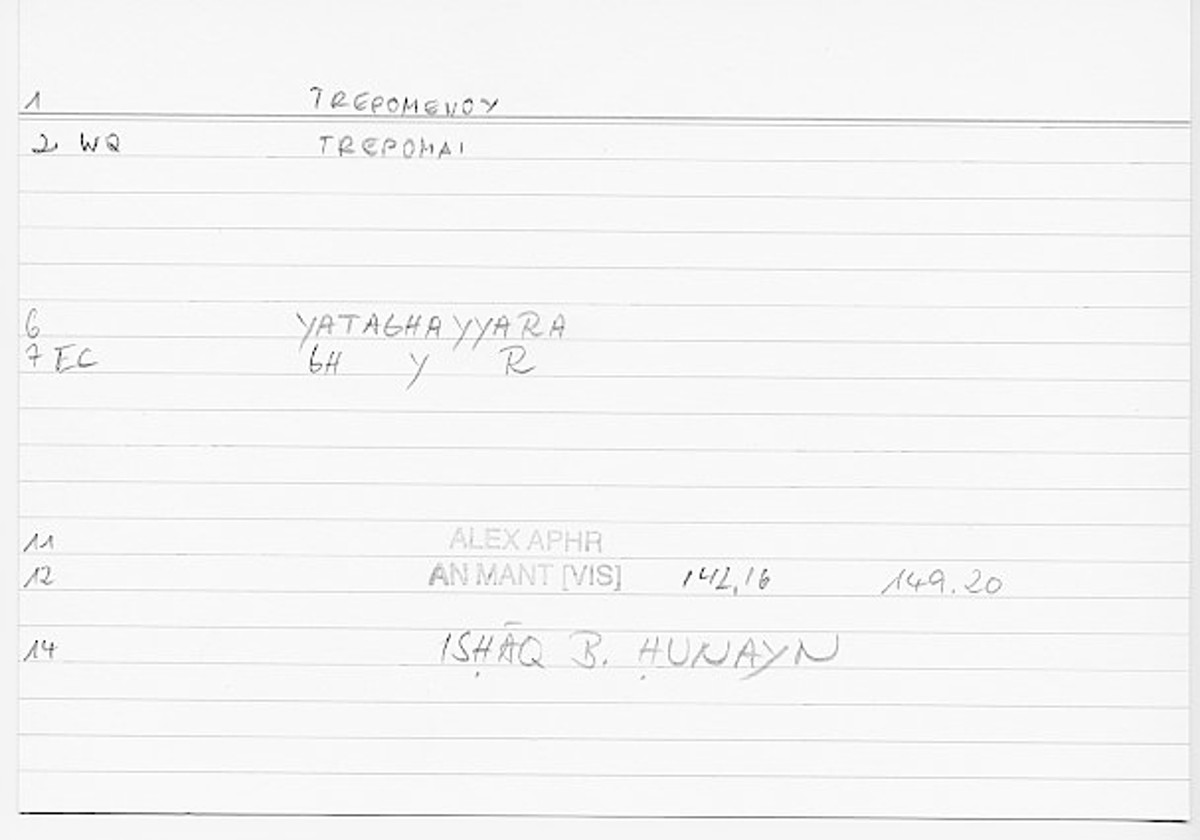 1 TREPOMENOY
2 WQ TREPOMAI
6 YATAGHAYYARA
7 EC GH Y R
11 ALEX APHR
12 AN MANT [VIS] 142,16 149.20
14 ISḤĀQ B. ḤUNAYN